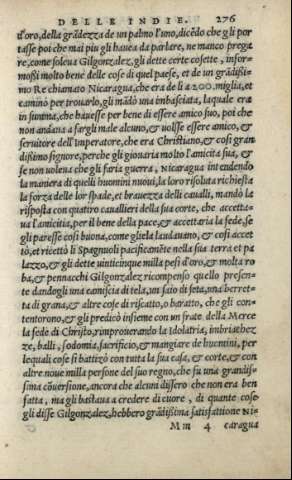 DELLE INDIE. 276
d'oro, della grãdezza de un palmo l'uno, dicẽdo che gli por
tasse poi che mai piu gli haueа da parlare, ne manco prega
re, come soleua Gilgonzalez, gli dette certe cosette, infor-
mossi molto bene delle cose di quel paese, et de un grãdissi-
mo Re chiamato Nicaragua, che era de li a 200. miglia, et
caminò per trouarlo, gli mãdò una imbasciata, laquale era
in summa, che hauesse per bene di essere amico suo, poi che
non andaua a fargli male alcuno, & uolisse essere amico, &
seruitore dell'Imperatore, che era Christiano, & cosi gran
dissimo signore, perche gli giouaria molto l'amicitia sua, &
se non uoleua che gli faria guerra, Nicaragua intendendo
la maniera di quelli huomini nuoui, la loro risoluta richiesta
la forza delle lor spade, et brauezza delli caualli, mandò la
risposta con quattro cauallieri della sua corte, che accetta-
ua l'amicitia, per il bene della pace, & accettaria la fede, se
gli paresse cosi buona, come gliela laudauano, & cosi accet
tò, et ricettò li Spagnuoli pacificamẽte nella sua terra et pa
lazzo, & gli dette uinticinque milla pesi d'oro, & molta ro
ba, & pennacchi Gilgonzalez ricompenso quello presen-
te dandogli una camiscia di tela, un saio di seta, una berret-
ta di grana, & altre cose di riscatto, o baratto, che gli con-
tentorono, & gli predicò insieme con un frate della Merce
la fede di Christo, rimprouerando la Idolatria, imbriachez
ze, balli, sodomia, sacrificio, & mangiare de huomini, per
lequali cose si battizò con tutta la sua casa, & corte, & con
altre noue milla persone del suo regno, che fu una grandis-
sima cõuersione, ancora che alcuni dissero che non era ben
fatta, ma gli bastaua a credere di cuore, di quante cose
gli disse Gilgonzalez, hebbero grãdissima satisfattione Ni-
Mm 4 caragua